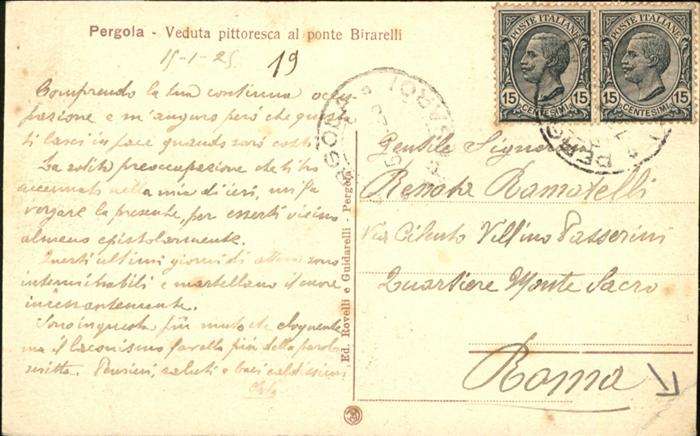 Pergola - Veduta pittoresca al ponte Birarelli
15-1-25 19
Comprendo la tua continua occu-
pazione e m'auguro però che questa
ti lasci in pace quando sarò costì
La solita preoccupazione che ti ho
accennato nella mia di ieri, mi fa
vergare la presente, per esserti vicino
almeno epistolarmente.
Questi ultimi giorni di attesa sono
interminabili e martellano il cuore
incessantemente.
Sono in questa più muto che eloquente
ma il laconismo favella più della parola
scritta. Pensieri, saluti e baci
POSTE ITALIANE
15 CENTESIMI 15
POSTE ITALIANE
15 CENTESIMI 15
Gentile Signorina
Renata Ramatelli
Via Cilento Villino Passerini
Quartiere Monte Sacro
Roma
Ed. Rovelli e Guidarelli - Pergola